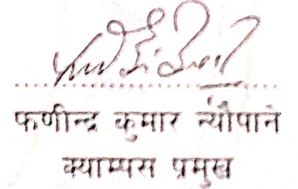 फणीन्द्र कुमार न्यौपाने
क्याम्पस प्रमुख